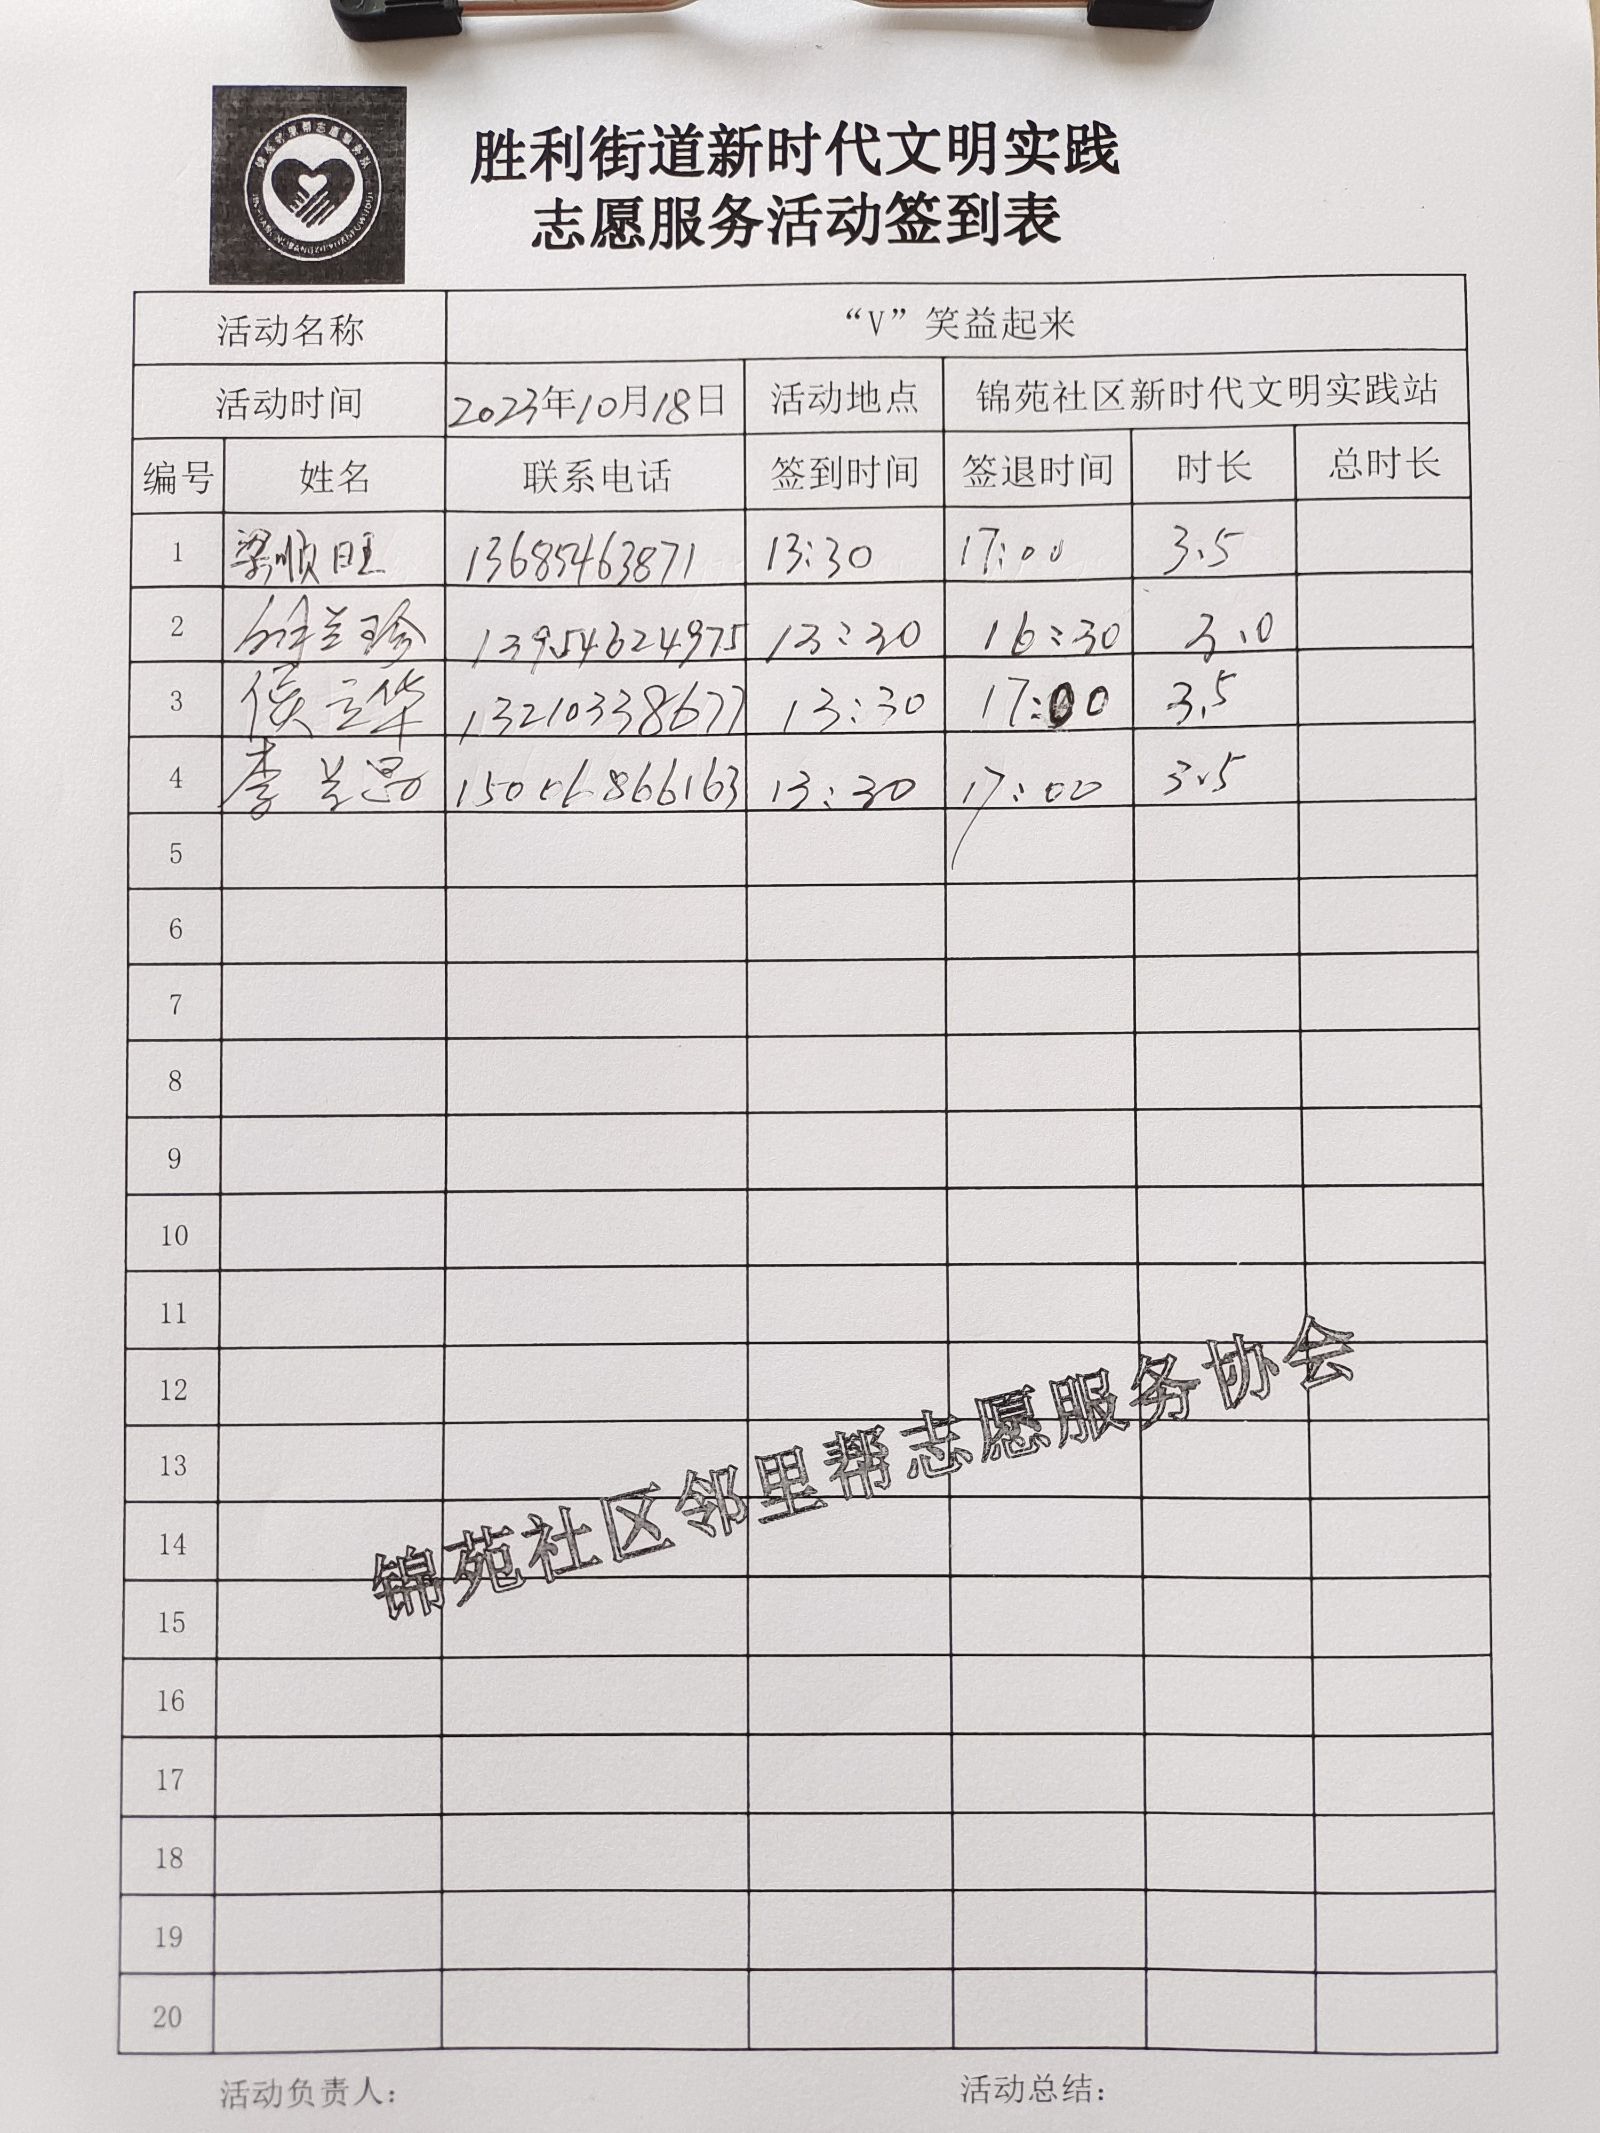 胜利街道新时代文明实践
志愿服务活动签到表
活动名称 “V”笑益起来
活动时间 2023年10月18日 活动地点 锦苑社区新时代文明实践站
编号 姓名 联系电话 签到时间 签退时间 时长 总时长
1 梁顺旺 13685463871 13:30 17:00 3.5
2 兰珍 13954624975 13:30 16:30 3.0
3 侯立华 13210338677 13:30 17:00 3.5
4 李兰 15006866163 13:30 17:00 3.5
5
6
7
8
9
10
11
12
13
14
15
16
17
18
19
20
锦苑社区邻里帮志愿服务协会
活动负责人: 活动总结: